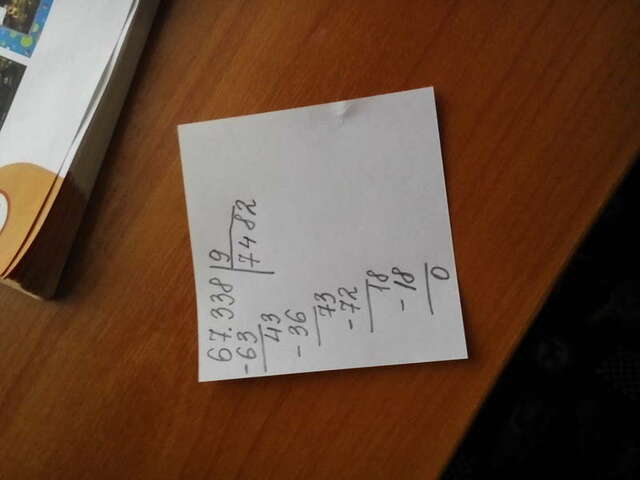 67.338|9
-63 7482
43
-36
73
-72
18
-18
0